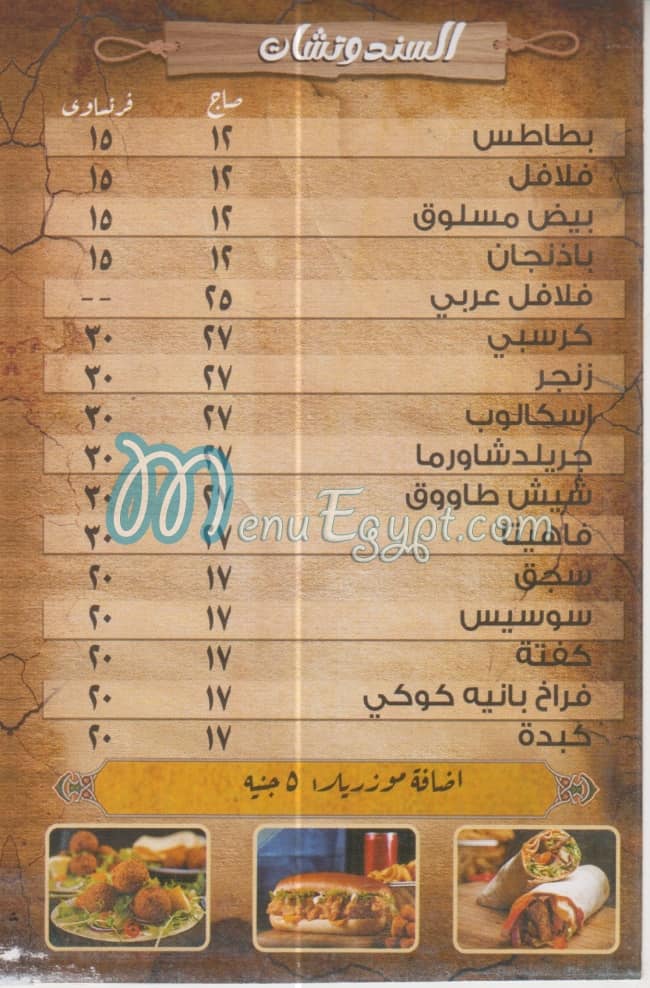 السندوتشات
صاج فرنساوى
بطاطس ١٢ ١٥
فلافل ١٢ ١٥
بيض مسلوق ١٢ ١٥
باذنجان ١٢ ١٥
فلافل عربي ٢٥ --
كرسبي ٢٧ ٣٠
زنجر ٢٧ ٣٠
اسكالوب ٢٧ ٣٠
جريلدشاورما ٢٧ ٣٠
شيش طاووق ٢٧ ٣٠
فاهيتا ٢٧ ٣٠
سجق ١٧ ٢٠
سوسيس ١٧ ٢٠
كفتة ١٧ ٢٠
فراخ بانيه كوكي ١٧ ٢٠
كبدة ١٧ ٢٠
اضافة موزريلا ٥ جنيه
MenuEgypt.com